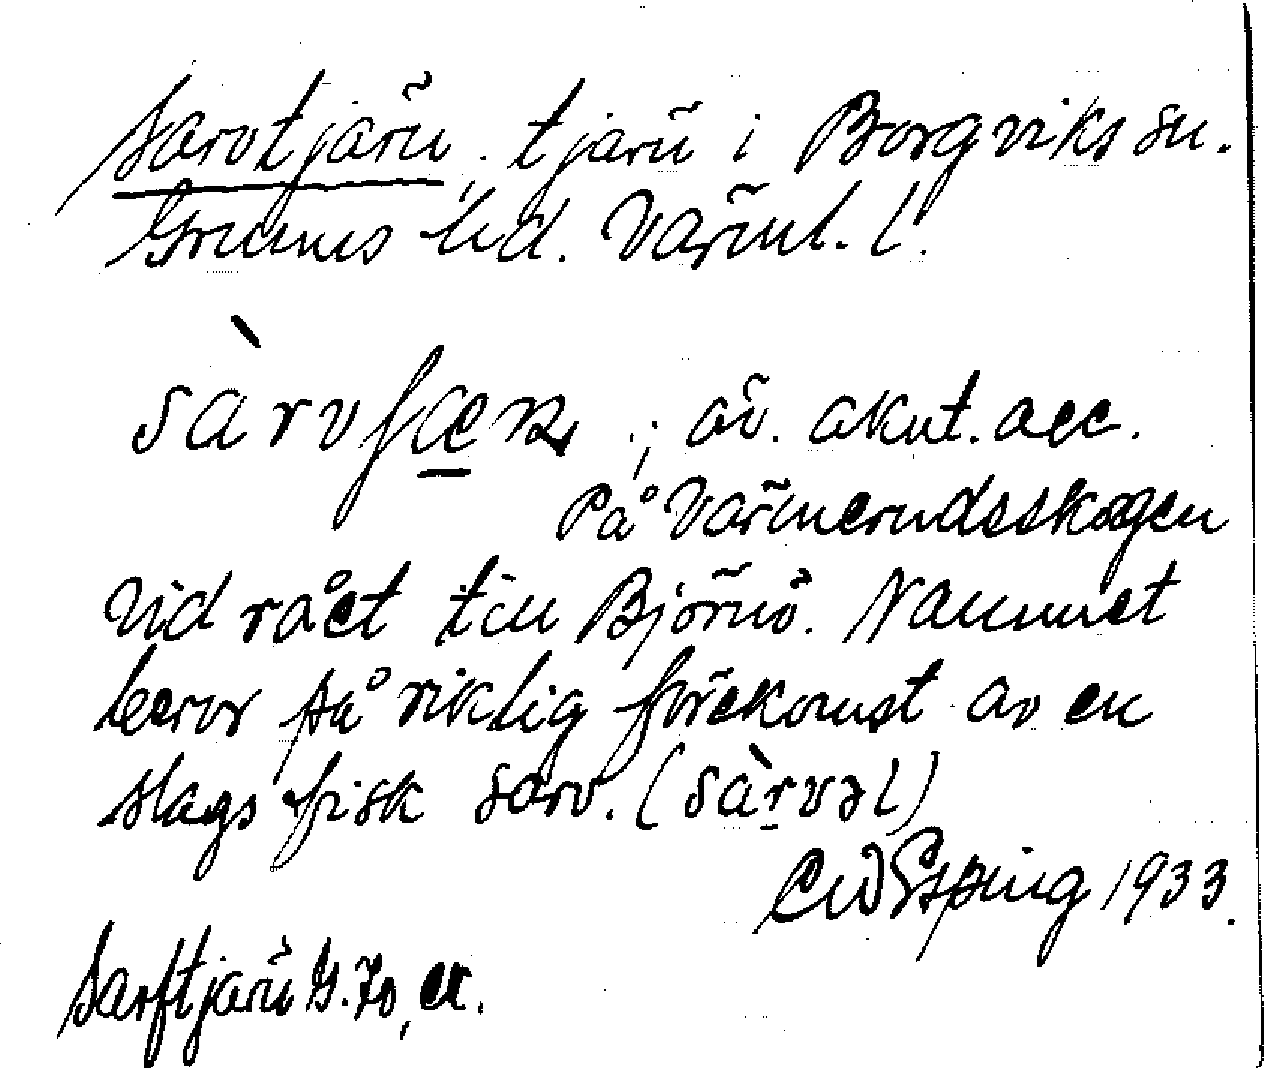 Sarvtjärn, tjärn i Borgviks sn.
Grums hd. Värml. l.
sàrvʃæɳ, ; äv. akut. acc.
På Värmerudsskogen
vid rået till Björnö. Namnet
beror på riklig förekomst av en
slags fisk sarv. (sàrvəl)
CWEsping 1933.
Sarftjärn G. 70, ek.